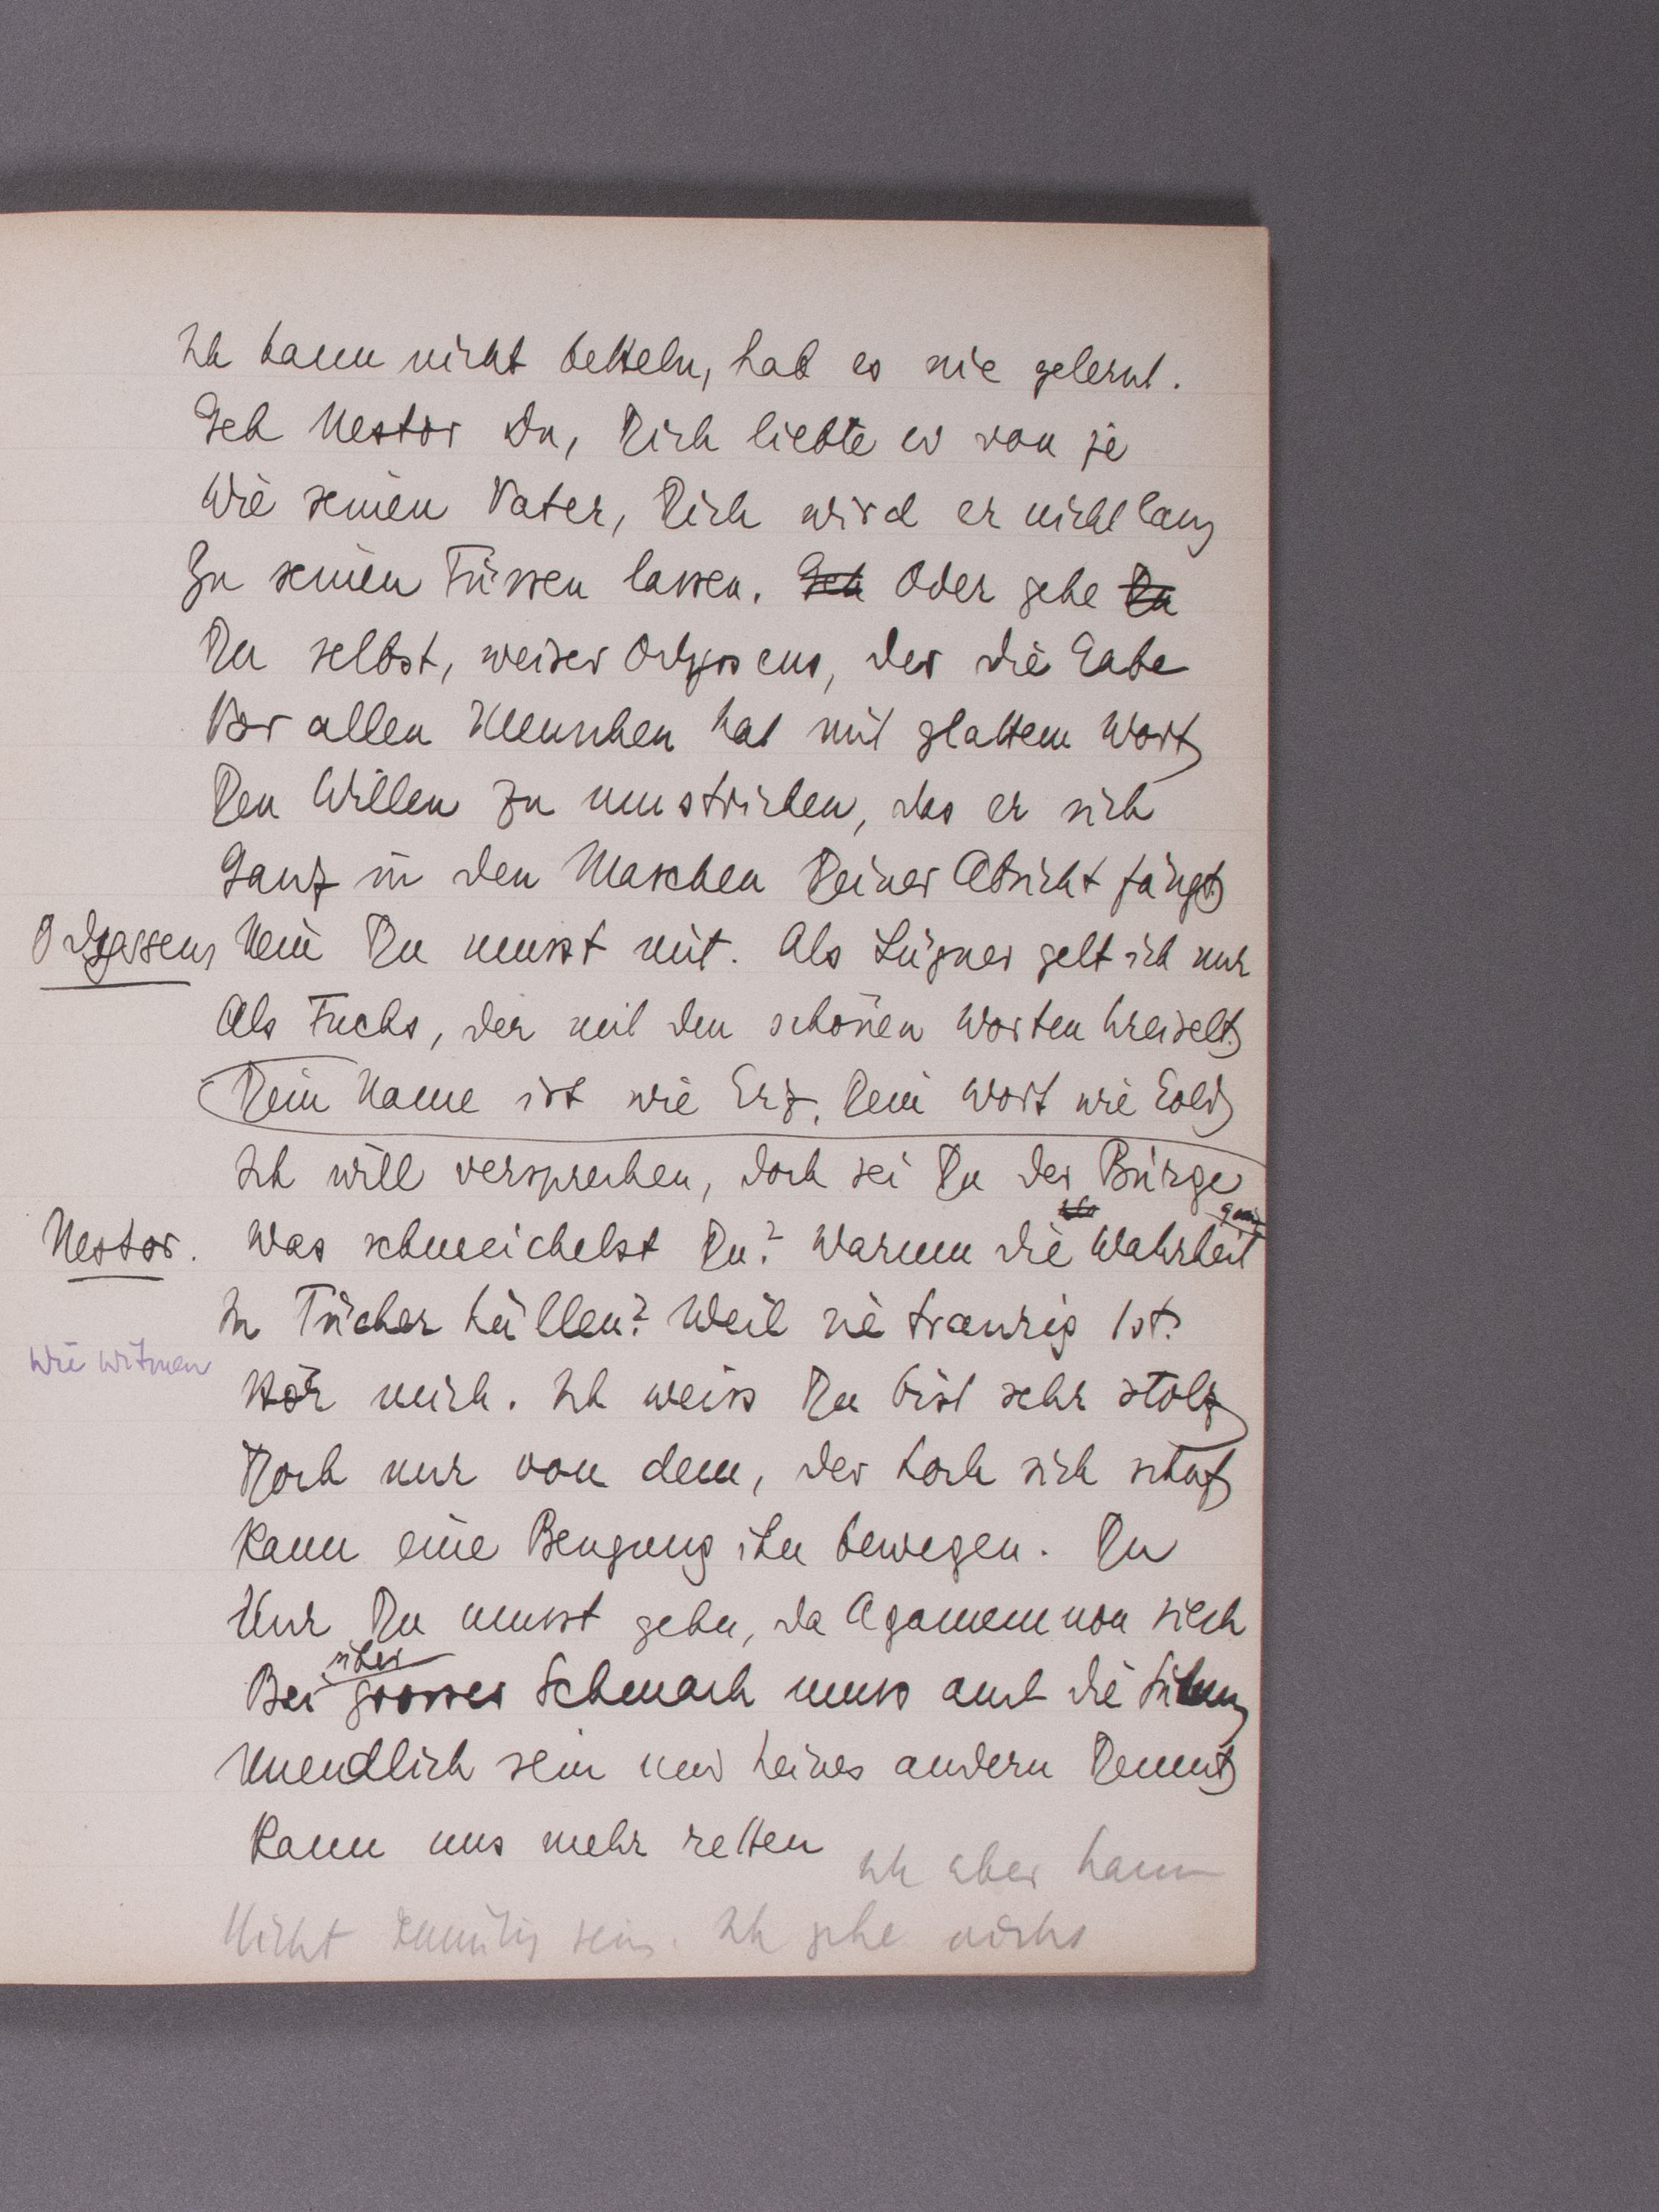 Ich kann nicht betteln, hab es nie gelernt.
Geh Nestor Du, Dich liebte er von je
Wie seinen Vater, Dich wird er nicht lang
Zu seinen Füssen lassen. Geh Oder gehe Du
Du selbst, weiser Odysseus, der die Gabe
Vor allen Menschen hat mit glattem Wort
Den Willen zu umstricken, das er sich
Ganz in den Maschen Deiner Absicht fängt.
Odysseus Nein Du musst mit. Als Lügner gelt ich nur
Als Fuchs, der mit den schönen Worten kreiselt.
Dein Name ist wie Erz, Dein Wort wie Gold
Ich will versprechen, doch sei Du der Bürge
ganz
Nestor. Was schmeichelst Du? Warum die Wahrheit
In Tücher hüllen? Weil sie traurig ist?
Wir wissen
Hör mich. Ich weiss Du bist sehr stolz
Doch nur von dem, der hoch sich schuf
Kann eine Beugung ihn bewegen. Du
Nur Du musst gehn, da Agamemnon siech
über
Bei grosser Schmach muss auch die Sühnung
Unendlich sein und keines andern Demut
Kann uns mehr retten Ich aber kann
Nicht demütig sein. Ich gehe nichts